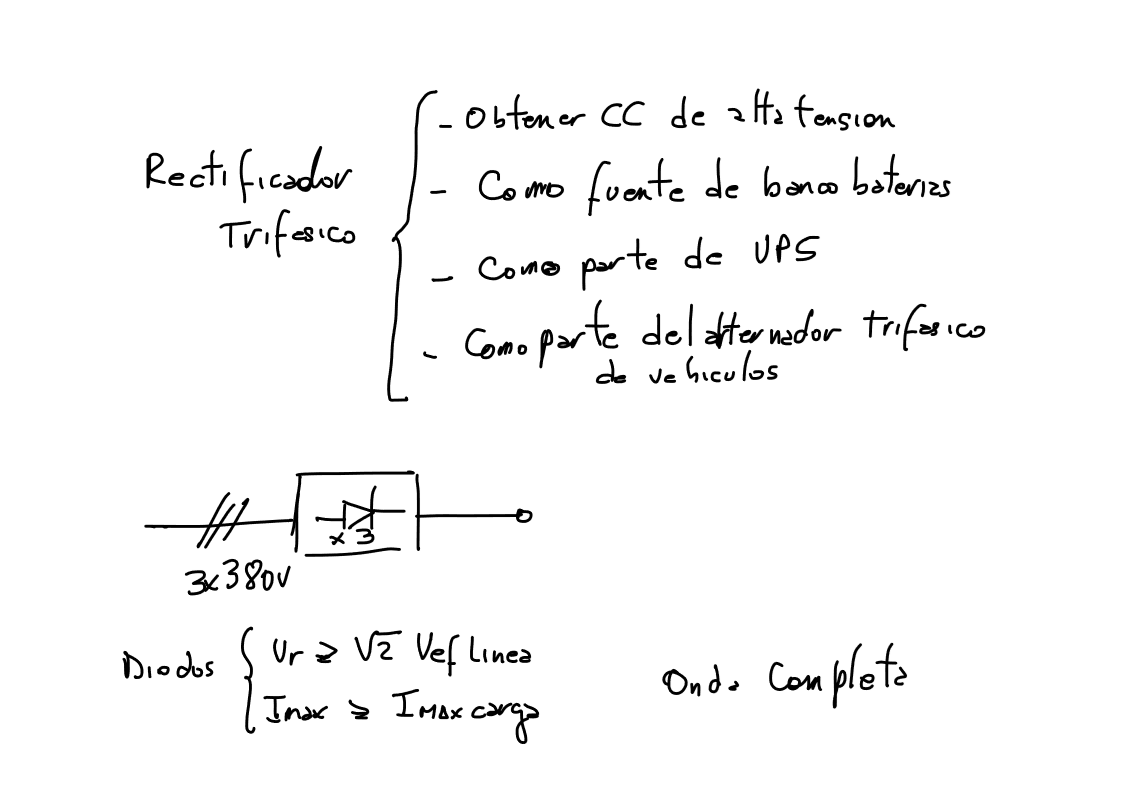 Rectificador
Trifasico
- Obtener CC de alta tension
- Como fuente de banco baterias
- Como parte de UPS
- Como parte del alternador trifasico
de vehiculos
x 3
3x380V
Diodos
Vr ≥ √2 Vef Linea
Imax ≥ IMAX carga
Onda Completa